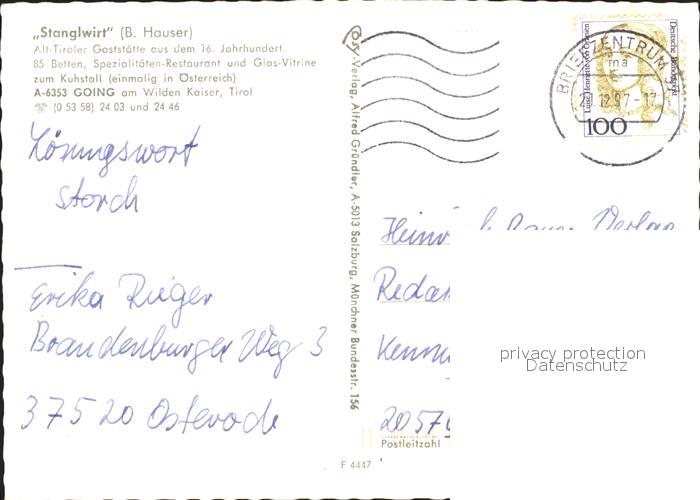 „Stanglwirt" (B. Hauser)
Alt-Tiroler Gaststätte aus dem 16. Jahrhundert.
85 Betten, Spezialitäten-Restaurant und Glas-Vitrine
zum Kuhstall (einmalig in Österreich)
A-6353 GOING am Wilden Kaiser, Tirol
☏ (0 53 58) 24 03 und 24 46
Lösungswort
Storch
Erika Rieger
Brandenburger Weg 3
37520 Osterode
Verlag, Alfred Gründler, A-5013 Salzburg, Münchner Bundesstr. 156
F 4447
BRIEFZENTRUM
12.97-17
Deutsche Bundespost
100
Heinr Bauer Verlag
Redak
2057
Postleitzahl
privacy protection
Datenschutz